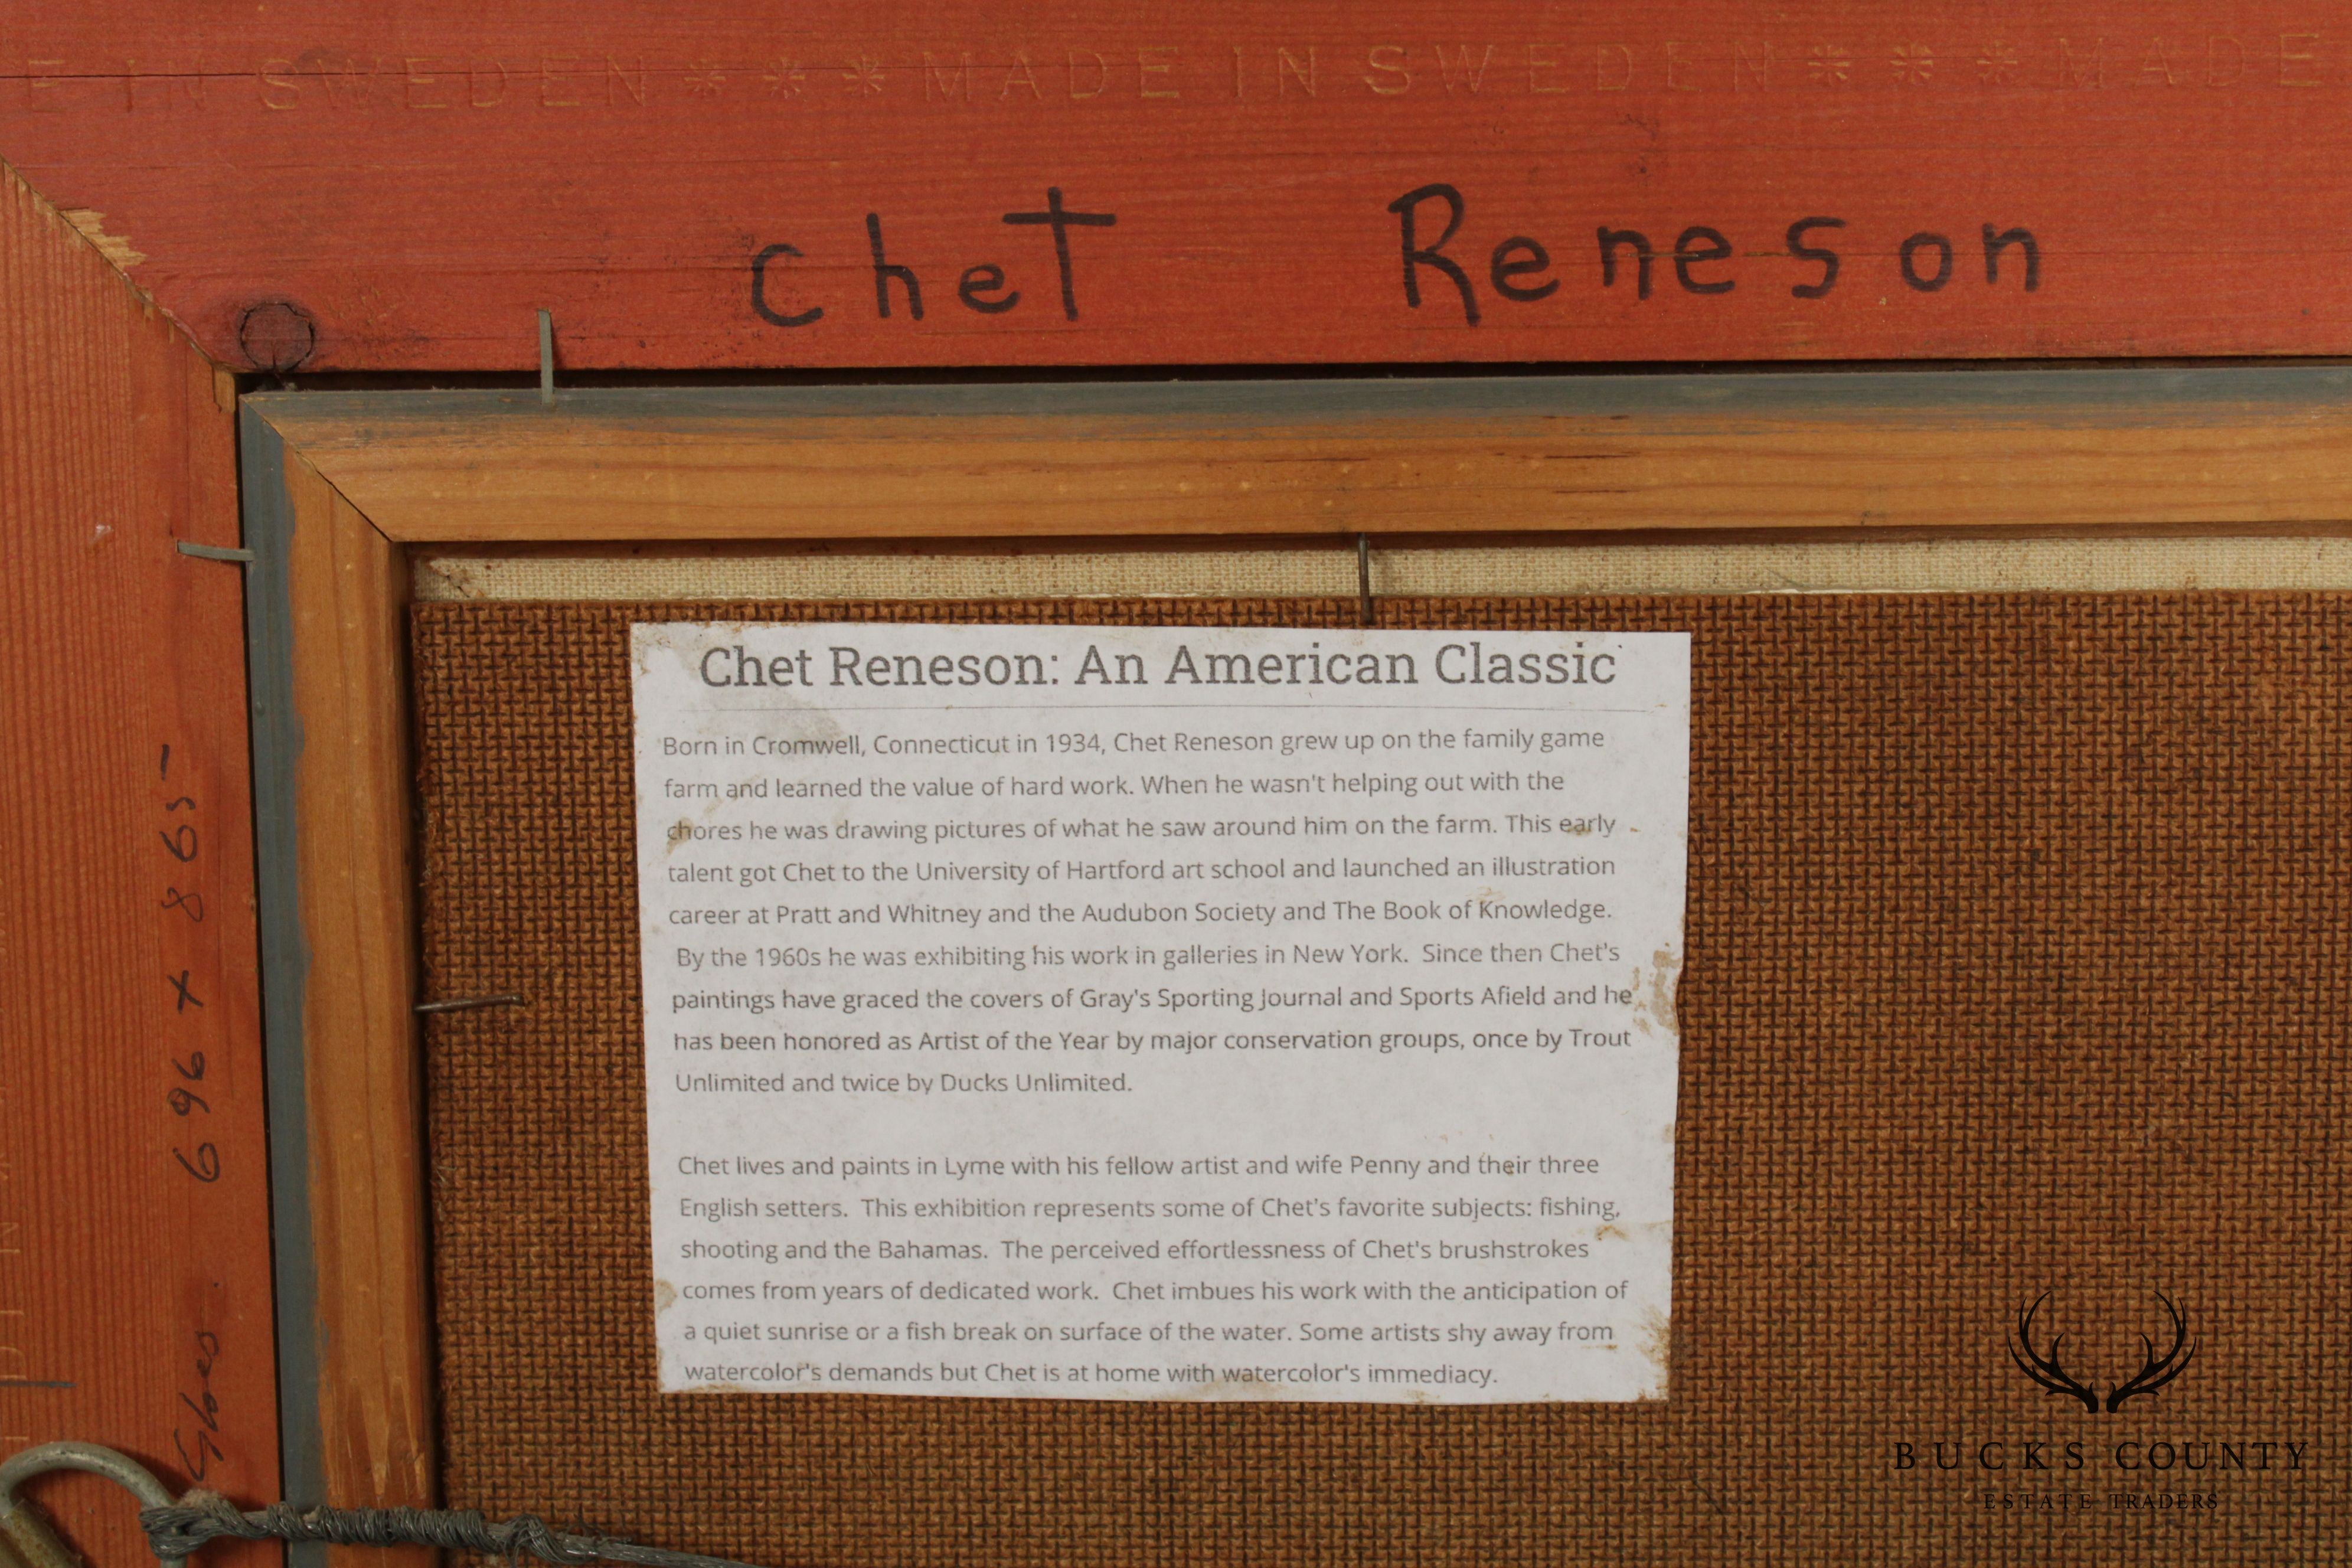 E IN SWEDEN *** MADE IN SWEDEN *** MADE
Chet Reneson
Chet Reneson: An American Classic
Born in Cromwell, Connecticut in 1934, Chet Reneson grew up on the family game
farm and learned the value of hard work. When he wasn't helping out with the
chores he was drawing pictures of what he saw around him on the farm. This early
talent got Chet to the University of Hartford art school and launched an illustration
career at Pratt and Whitney and the Audubon Society and The Book of Knowledge.
By the 1960s he was exhibiting his work in galleries in New York. Since then Chet's
paintings have graced the covers of Gray's Sporting Journal and Sports Afield and he
has been honored as Artist of the Year by major conservation groups, once by Trout
Unlimited and twice by Ducks Unlimited.
Chet lives and paints in Lyme with his fellow artist and wife Penny and their three
English setters. This exhibition represents some of Chet's favorite subjects: fishing,
shooting and the Bahamas. The perceived effortlessness of Chet's brushstrokes
comes from years of dedicated work. Chet imbues his work with the anticipation of
a quiet sunrise or a fish break on surface of the water. Some artists shy away from
watercolor's demands but Chet is at home with watercolor's immediacy.
696 x 865-
BUCKS COUNTY
ESTATE TRADERS